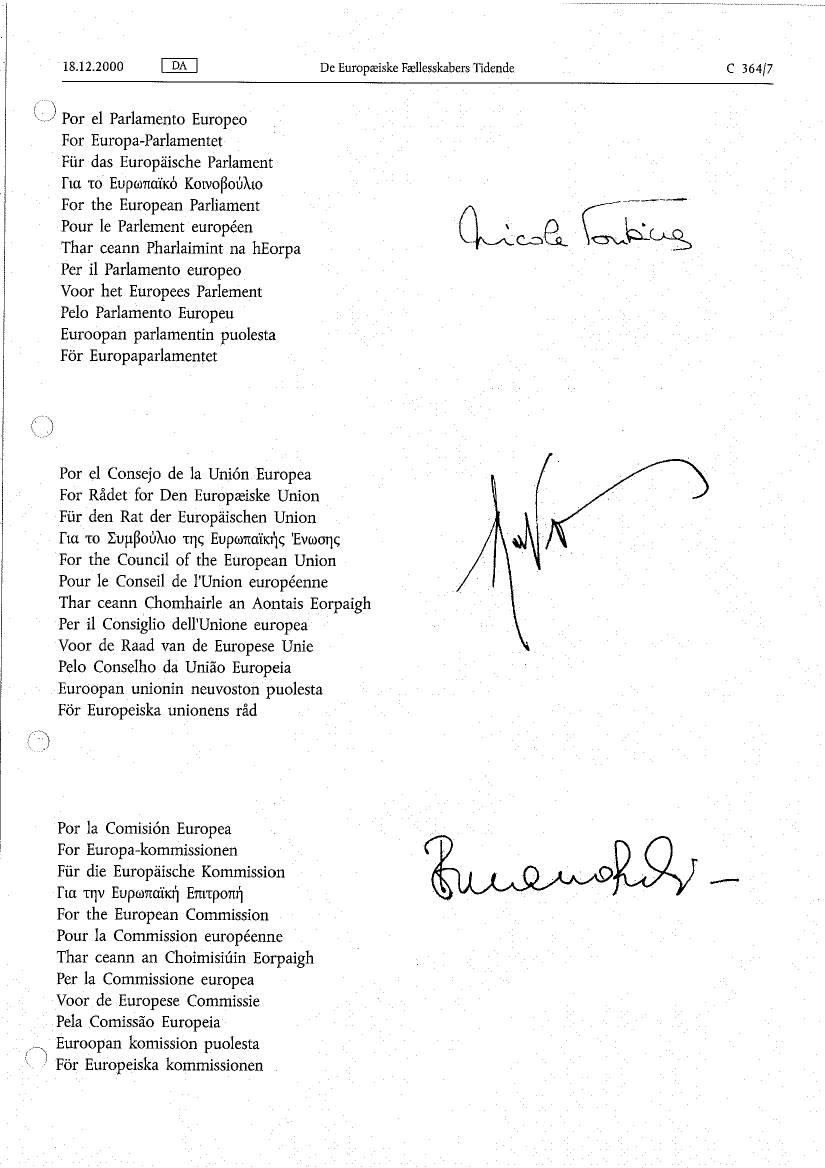 18.12.2000 DA De Europæiske Fællesskabers Tidende C 364/7
Por el Parlamento Europeo
For Europa-Parlamentet
Für das Europäische Parlament
Για το Ευρωπαϊκό Κοινοβούλιο
For the European Parliament
Pour le Parlement européen
Thar ceann Pharlaimint na hEorpa
Per il Parlamento europeo
Voor het Europees Parlement
Pelo Parlamento Europeu
Euroopan parlamentin puolesta
För Europaparlamentet
Nicole
Por el Consejo de la Unión Europea
For Rådet for Den Europæiske Union
Für den Rat der Europäischen Union
Για το Συμβούλιο της Ευρωπαϊκής Ένωσης
For the Council of the European Union
Pour le Conseil de l'Union européenne
Thar ceann Chomhairle an Aontais Eorpaigh
Per il Consiglio dell'Unione europea
Voor de Raad van de Europese Unie
Pelo Conselho da União Europeia
Euroopan unionin neuvoston puolesta
För Europeiska unionens råd
Por la Comisión Europea
For Europa-kommissionen
Für die Europäische Kommission
Για την Ευρωπαϊκή Επιτροπή
For the European Commission
Pour la Commission européenne
Thar ceann an Choimisiúin Eorpaigh
Per la Commissione europea
Voor de Europese Commissie
Pela Comissão Europeia
Euroopan komission puolesta
För Europeiska kommissionen